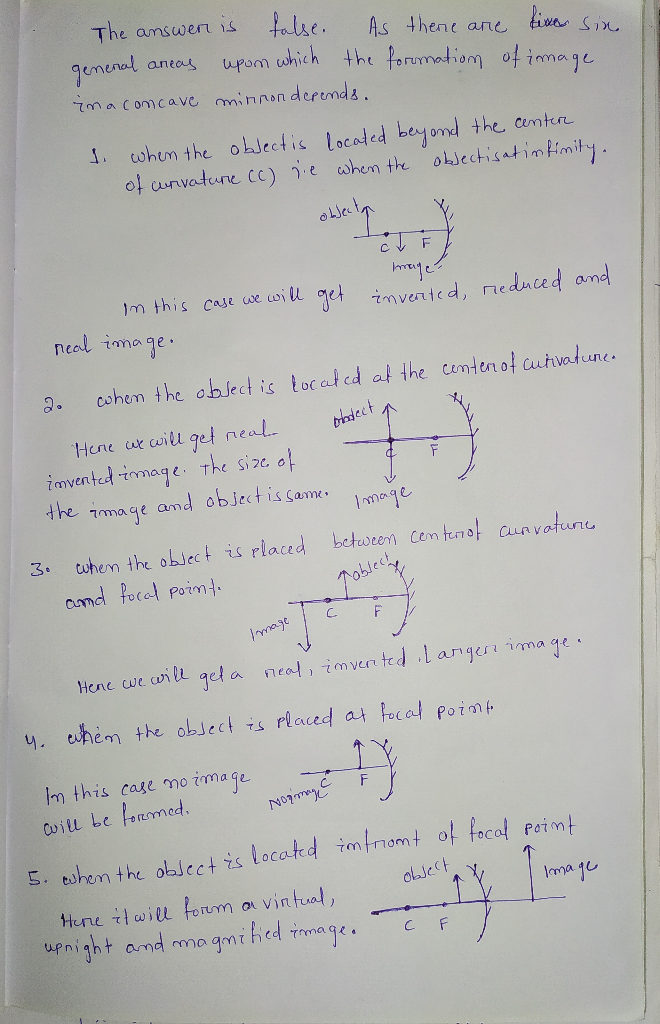 The answer is false. As there are six
general areas upon which the formation of image
in a concave mirror depends.
1. when the object is located beyond the center
of curvature (C) i.e when the object is at infinity.
object
C F
Image
In this case we will get inverted, reduced and
real image.
2. when the object is located at the center of curvature.
Here we will get real
inverted image. The size of
the image and object is same.
object
C F
Image
3. when the object is placed between center of curvature
and focal point.
object
Image C F
Here we will get a real, inverted, Larger image.
4. when the object is placed at focal point.
In this case no image
will be formed.
No image C F
5. when the object is located infront of focal point
Here it will form a virtual,
upright and magnified image.
object Image
C F